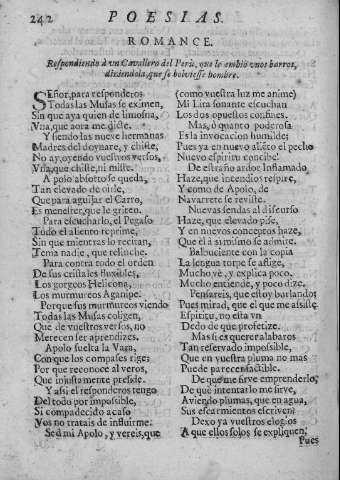 242 POESIAS.
ROMANCE.
Respondiendo à vn Cavallero del Perù, que le embiò vnos barros,
diziendola, que se bolviesse hombre.
SEñor, para responderos
Todas las Musas se eximen,
Sin que aya quien de limosna,
Vna, que aora me dicte.
Y siendo las nueve hermanas
Madres del donayre, y chiste,
No ay, oyendo vuestros versos,
Vna, que chiste, ni miste.
Apolo absorto se queda,
Tan elevado de oirle,
Que para aguijar el Carro,
Es menester, que le griten.
Para escucharlo, el Pegaso
Todo el aliento reprime,
Sin que mientras lo recitan,
Tema nadie, que relinche.
Para contra todo el orden
De sus cristales fluxibles,
Los gorgeos Helicona,
Los murmureos Aganipe.
Porque sus murmureos viendo
Todas las Musas coligen,
Que de vuestros versos, no
Merecen ser aprendizes.
Apolo suelta la Vara,
Con que los compases rige;
Por que reconoce al veros,
Que injustamente preside.
Y assi el responderos tengo
Del todo por impossible,
Si compadecido acaso
Vos no tratais de influirme.
Sed mi Apolo, y vereis, que
(como vuestra luz me anime)
Mi Lira sonante escuchan
Los dos opuestos confines.
Mas, ò quanto poderosa
Es la invocacion humilde;
Pues ya en nuevo aliẽto el pecho
Nuevo espiritu concibe!
De estraño ardor inflamado
Haze, que incendios respire,
Y como de Apolo, de
Navarrete se reviste.
Nuevas sendas al discurso
Haze, que elevado pise,
Y en nuevos conceptos haze,
Que èl à si mismo se admire.
Balbuciente con la copia
La lengua torpe se aflige,
Mucho vè, y explica poco,
Mucho entiende, y poco dize.
Pensareis, que estoy burlando;
Pues mirad, que el que me assiste
Espiritu, no esta vn
Dedo de que profetize.
Mas si es querer alabaros
Tan reservado impossible,
Que en vuestra pluma no mas
Puede parecer factible.
De què me sirve emprenderlo,
De què intentarlo me sirve,
Aviendo plumas, que en agua,
Sus escarmientos escriven?
Dexo ya vuestros elogios
A que ellos solos se expliquen,
Pues